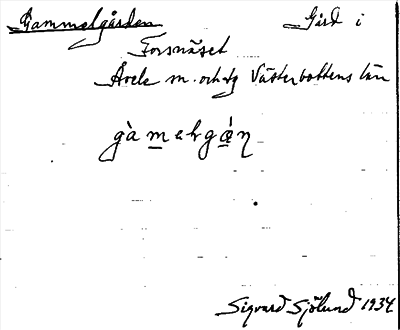 Gammelgården Gård i
Forsnäset
Åsele sn. och tg Västerbottens län
gàmelgá̱ŋ
Sigvard Sjölund 1934